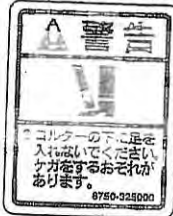 警告
コルターの下に足を
入れないでください。
ケガをするおそれが
あります。
6750-325000